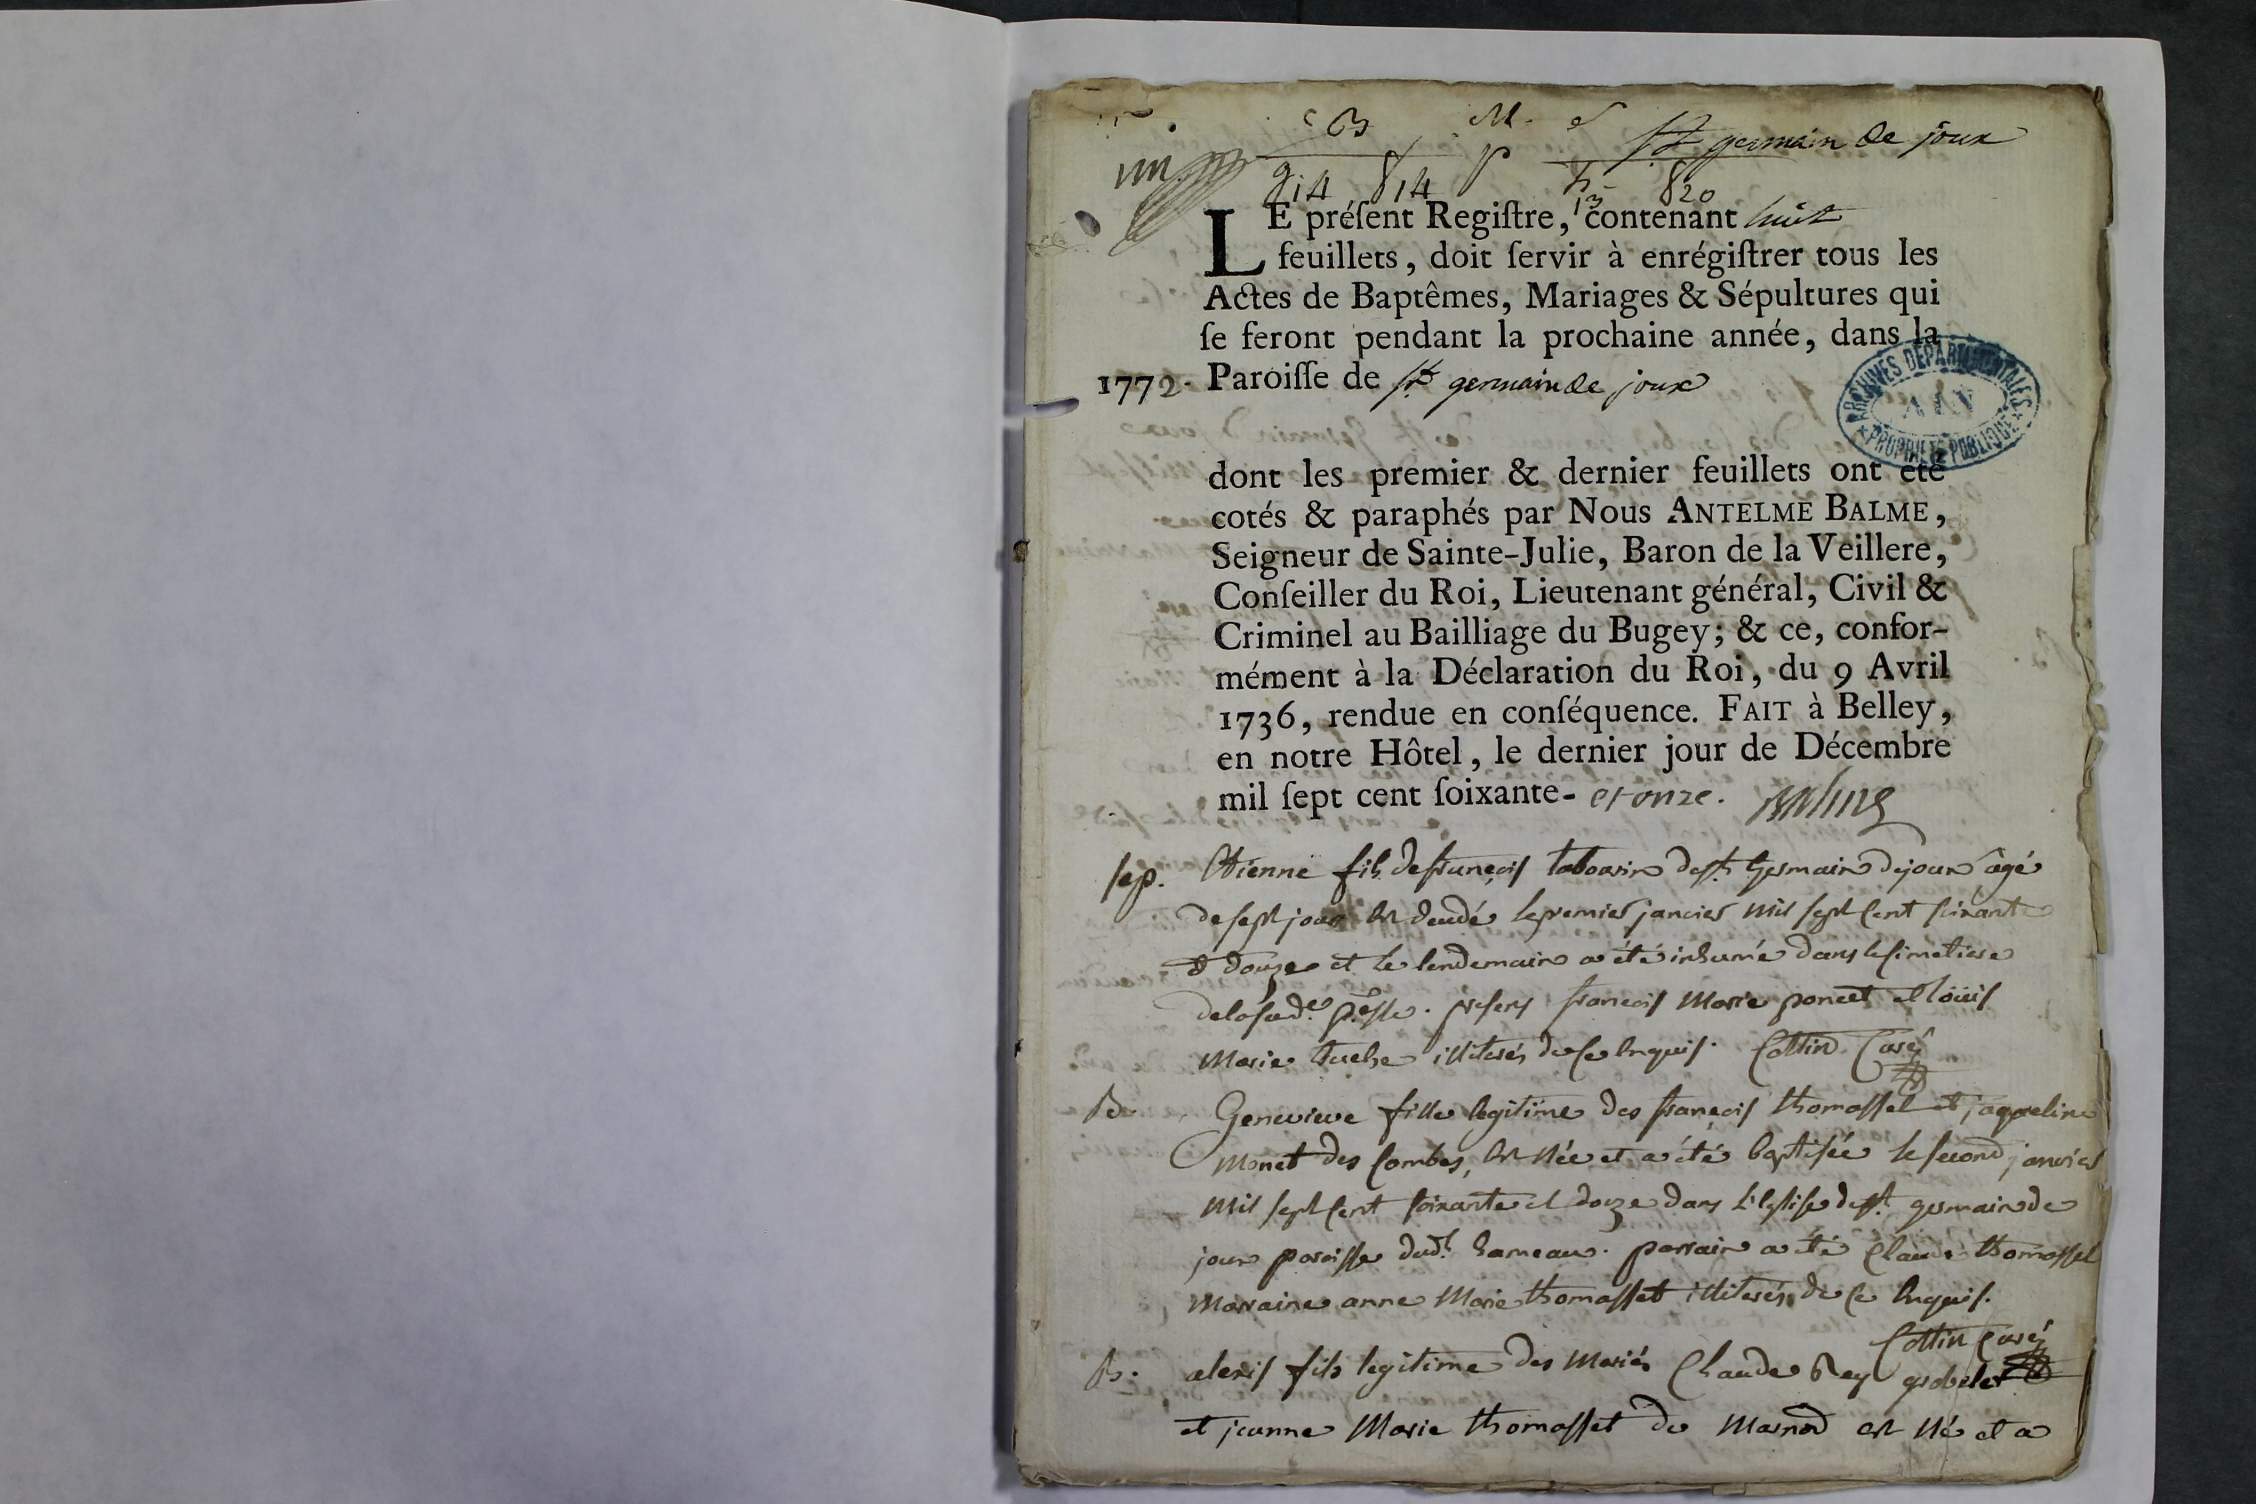 B M. S
St germain de joux
un
g 14 g 14 p 820
LE préſent Regiſtre, contenant huit
feuillets, doit ſervir à enrégiſtrer tous les
Actes de Baptêmes, Mariages & Sépultures qui
ſe feront pendant la prochaine année, dans la
1772. Paroiſſe de St germain de joux
ARCHIVES DÉPARTEMENTALES
AIN
PROPRIÉTÉ PUBLIQUE
dont les premier & dernier feuillets ont été
cotés & paraphés par Nous ANTELME BALME,
Seigneur de Sainte-Julie, Baron de la Veillere,
Conſeiller du Roi, Lieutenant général, Civil &
Criminel au Bailliage du Bugey; & ce, confor-
mément à la Déclaration du Roi, du 9 Avril
1736, rendue en conſéquence. FAIT à Belley,
en notre Hôtel, le dernier jour de Décembre
mil ſept cent ſoixante- et onze. Balme
sep. Etienne fils de françois tabourin de st germain de joux âgé
de sept jours est décédé le premier janvier mil sept cent soixante
& douze et le lendemain a été inhumé dans le simetiere
de la sud.e p.sse. presens françois Marie poncet et loüis
Marie tuche illiterés de ce enquis. Cottin Curé
B. Genevieve fille legitime des françois thomasset et jaqueline
Monet des Combes, est née et a été baptisée le second janvier
mil sept cent soixante et douze dans l'eglise de st. germain de
joux paroisse dud.t hameau. parrain a été Claude thomasset
marraine anne Marie thomasset illiterés de ce enquis.
Cottin Curé
B. alexis fils legitime des Mariés Claude Rey grobelet
et jeanne Marie thomasset de Marnod est né et a